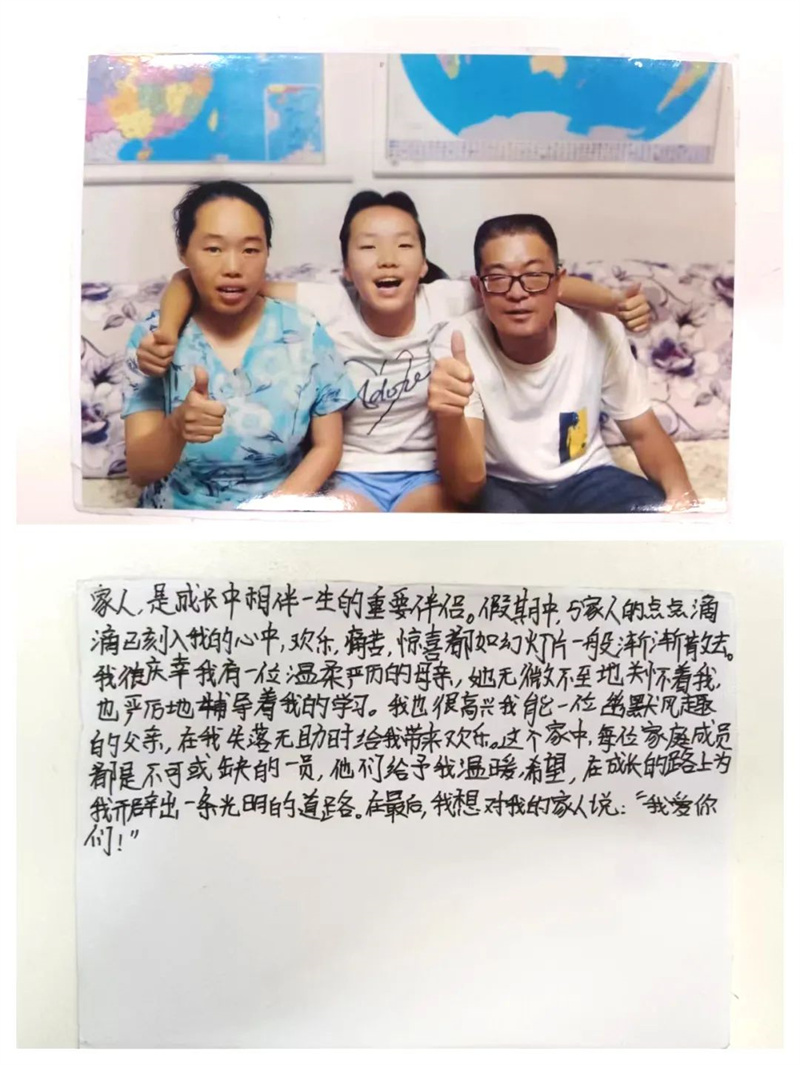 Adobe
家人,是成长中相伴一生的重要伴侣。假期中,与家人的点点滴
滴已刻入我的心中,欢乐,痛苦,惊喜都如幻灯片一般渐渐散去。
我很庆幸我有一位温柔严历的母亲,她无微不至地关怀着我,
也严厉地辅导着我的学习。我也很高兴我能一位幽默风趣
的父亲,在我失落无助时给我带来欢乐。这个家中,每位家庭成员
都是不可或缺的一员,他们给予我温暖,希望,在成长的路上为
我开辟出一条光明的道路。在最后,我想对我的家人说:“我爱你
们!”